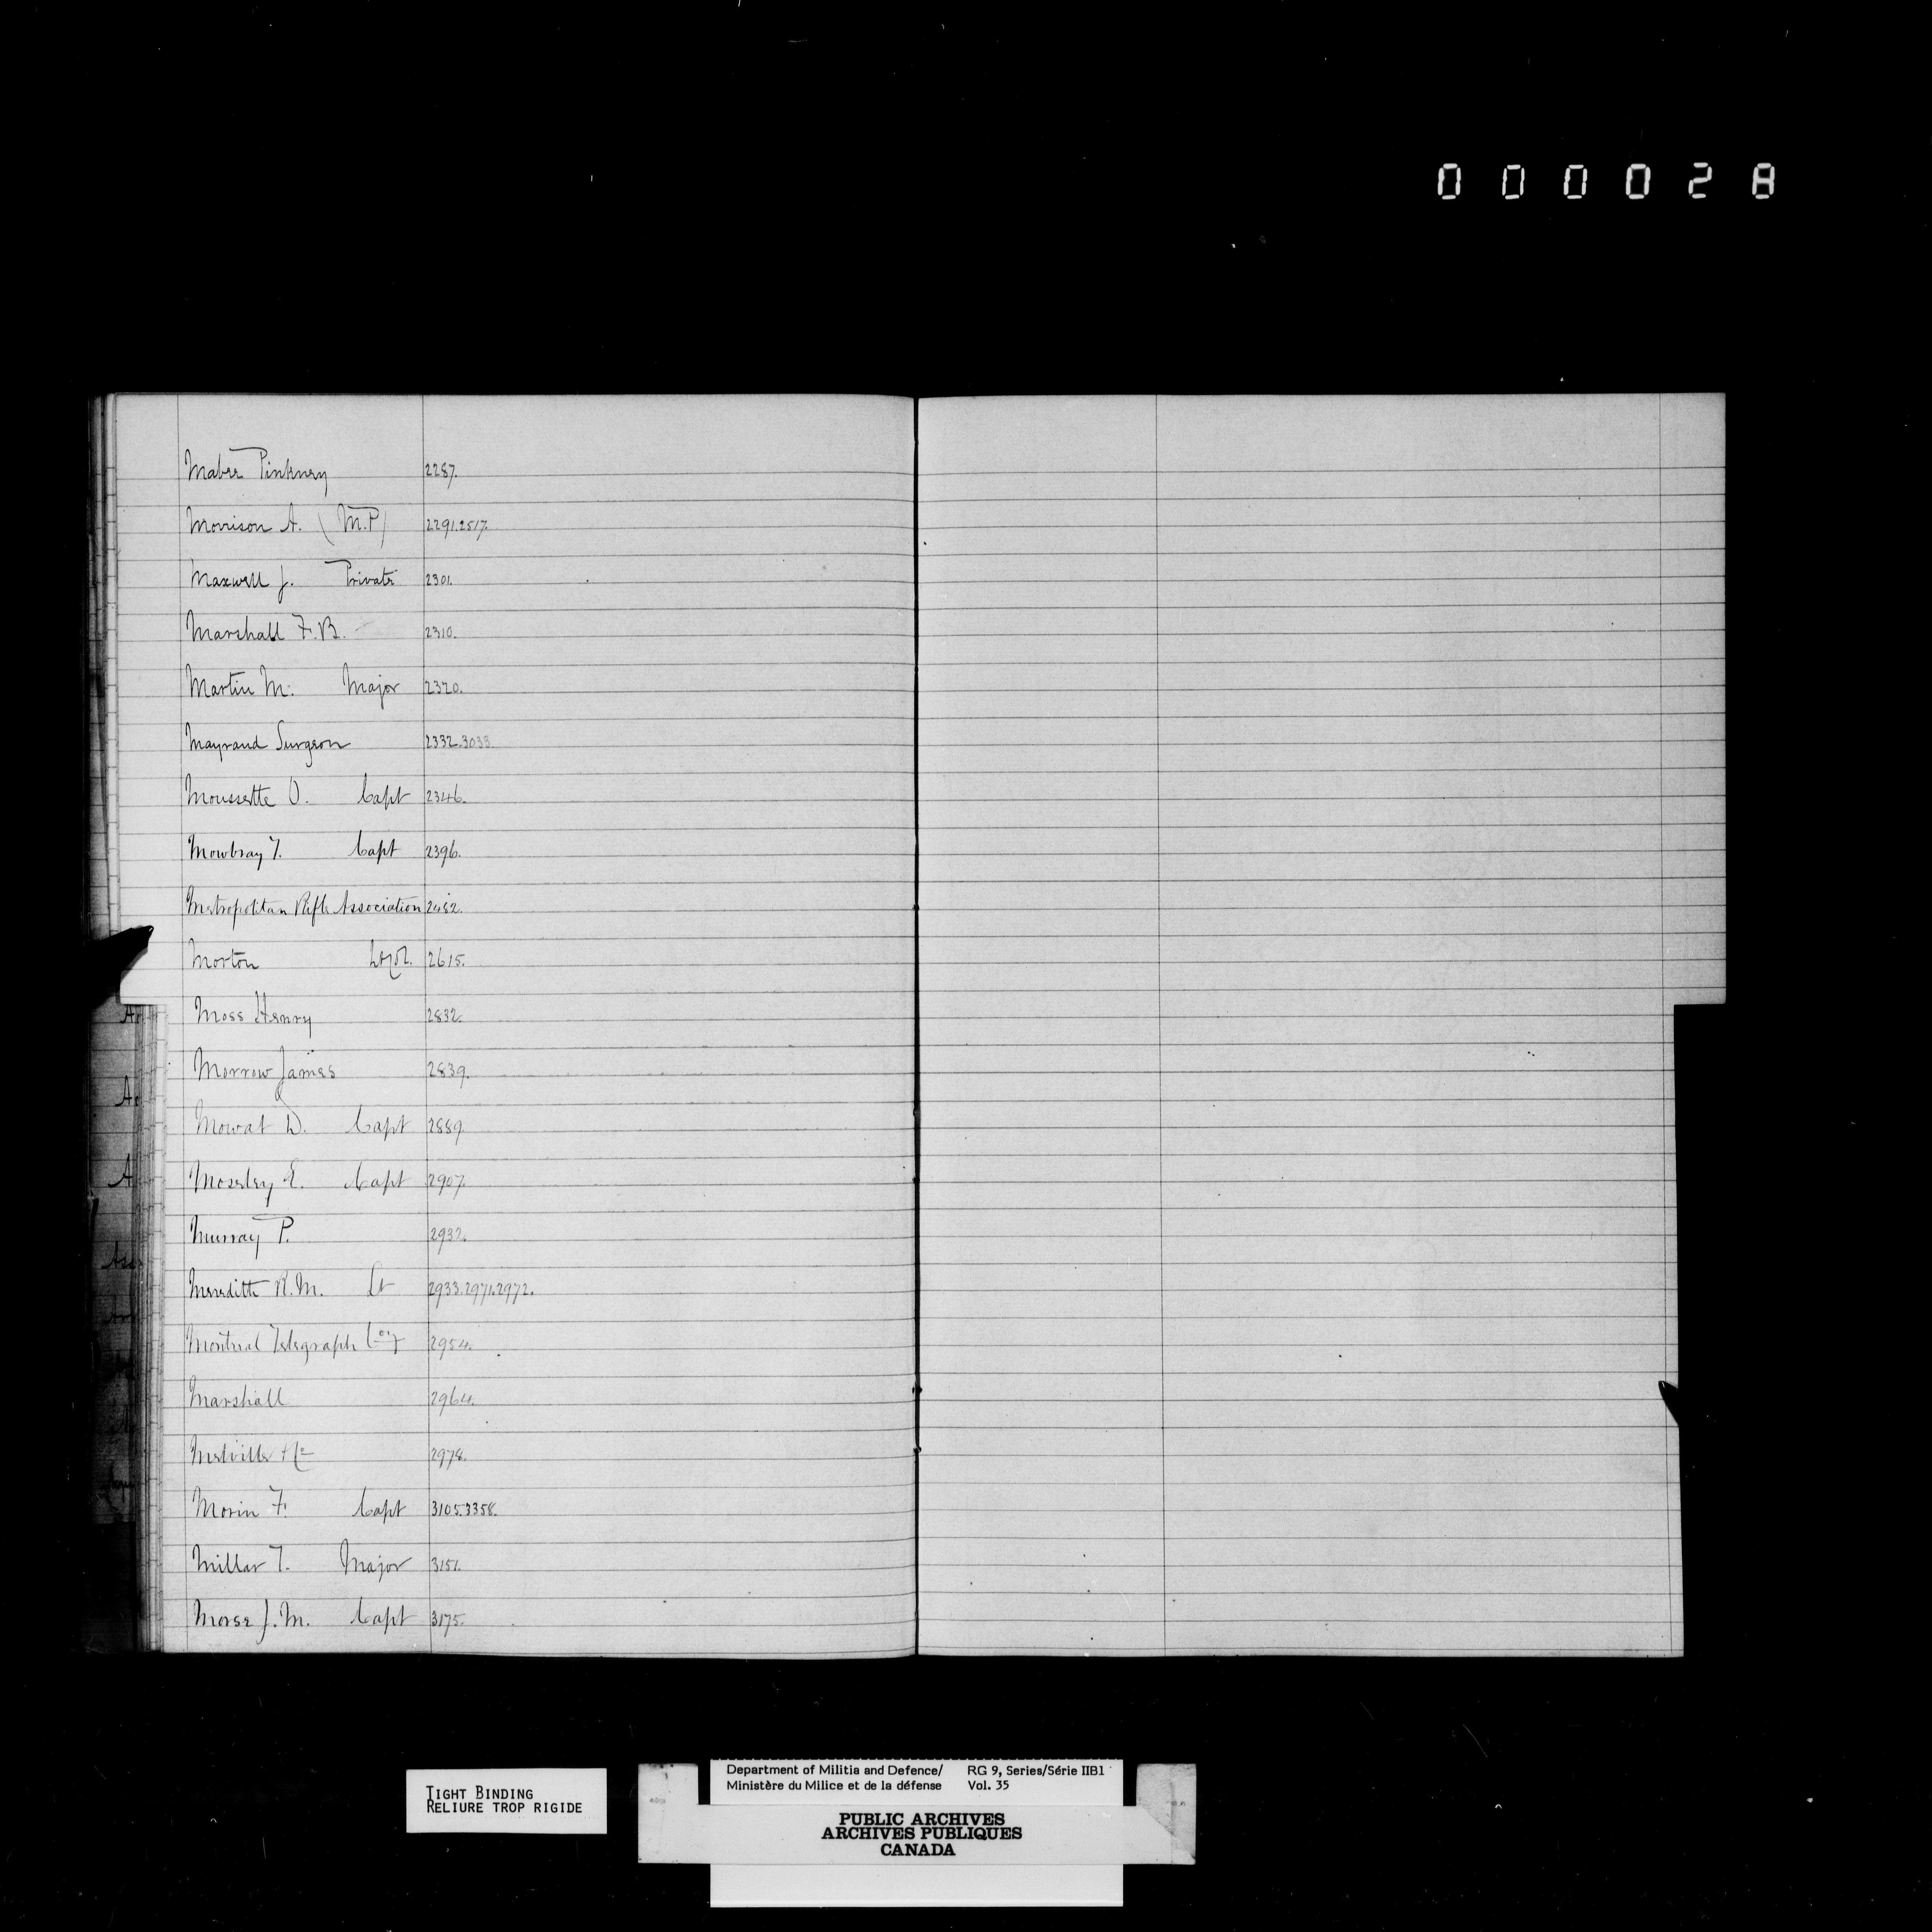 000028
Mabee Pinkney 2287.
Morrison A. (M.P) 2291.2517.
Maxwell J. Private 2301.
Marshall F.B. 2310.
Martin M. Major 2320.
Mayrand Surgeon 2332.3033.
Moussette O. Capt 2346.
Mowbray T. Capt 2396.
Metropolitan Rifle Association 2452.
Morton Lt Col. 2615.
Moss Henry 2832.
Morrow James 2839.
Mowat D. Capt 2889.
Moseley E. Capt 2907.
Murray P. 2932.
Meredith R.M. Lt 2933.2971.2972.
Montreal Telegraph Coy 2954.
Marshall 2964.
Melville & Co 2978.
Morin F. Capt 3105.3358.
Millar T. Major 3151.
Morse J.M. Capt 3175.
TIGHT BINDING
RELIURE TROP RIGIDE
Department of Militia and Defence/ RG 9, Series/Série IIB1
Ministère du Milice et de la défense Vol. 35
PUBLIC ARCHIVES
ARCHIVES PUBLIQUES
CANADA